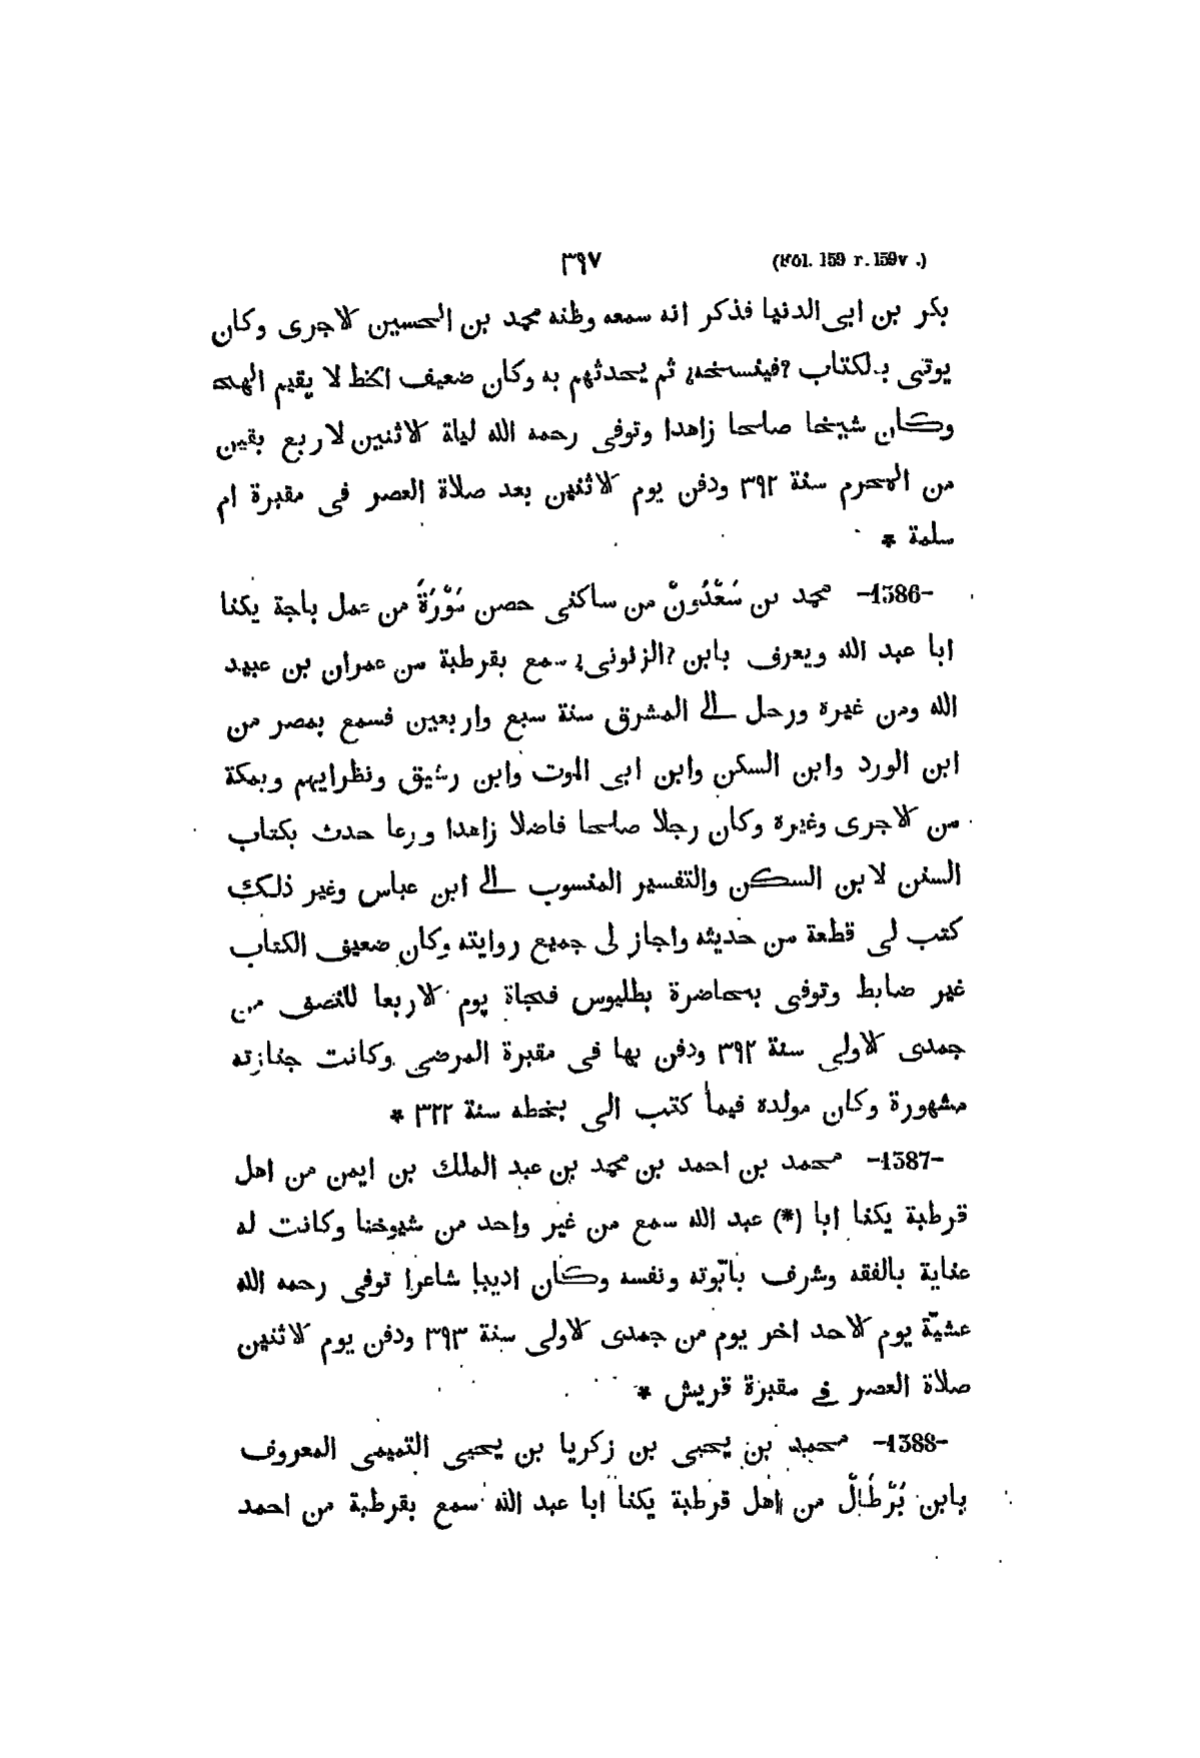 (Fol. 159 r. 159v .) ٣٩٧
بكر بن ابى الدنيا فذكر انه سمعه وظنه محمد بن الحسين الاجرى وكان
يوتى بالكتاب ?فينسخه? ثم يحدثهم به وكان ضعيف الخط لا يقيم الهجا
وكان شيخا صالحا زاهدا وتوفى رحمه الله ليلة الاثنين لاربع بقين
من المحرم سنة ٣٩٢ ودفن يوم الاثنين بعد صلاة العصر فى مقبرة ام
سلمة *
-1386- محمد بن سَعْدُونْ من ساكنى حصن مُوْرَةَ من عمل باجة يكنا
ابا عبد الله ويعرف بابن ?الزنونى? سمع بقرطبة من عمران بن عبيد
الله ومن غيره ورحل الى المشرق سنة سبع واربعين فسمع بمصر من
ابن الورد وابن السكن وابن ابى الموت وابن رشيق ونظرايهم وبمكة
من الاجرى وغيره وكان رجلا صالحا فاضلا زاهدا ورعا حدث بكتاب
السنن لابن السكن والتفسير المنسوب الى ابن عباس وغير ذلك
كتب لى قطعة من حديثه واجاز لى جميع روايته وكان ضعيف الكتاب
غير ضابط وتوفى بحاضرة بطليوس فجاة يوم الاربعا للنصف من
جمدى الاولى سنة ٣٩٢ ودفن بها فى مقبرة المرضى وكانت جنازته
مشهورة وكان مولده فيما كتب الى بخطه سنة ٣٢٢ *
-1387- محمد بن احمد بن محمد بن عبد الملك بن ايمن من اهل
قرطبة يكنا ابا (*) عبد الله سمع من غير واحد من شيوخنا وكانت له
عناية بالفقه وشرف بابّوته ونفسه وكان اديبا شاعرا توفى رحمه الله
عشيّة يوم الاحد اخر يوم من جمدى الاولى سنة ٣٩٣ ودفن يوم الاثنين
صلاة العصر فى مقبرة قريش *
-1388- محمد بن يحيى بن زكريا بن يحيى التميمى المعروف
بابن بُرْطَالّ من اهل قرطبة يكنا ابا عبد الله سمع بقرطبة من احمد